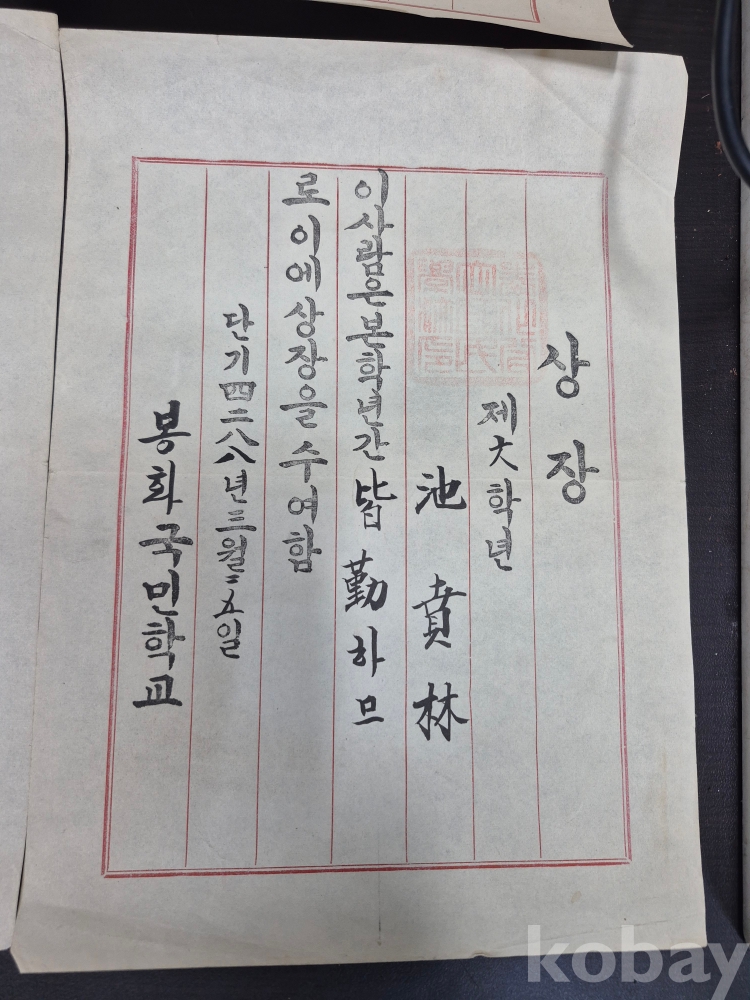 상장
제六학년
池賁林
이사람은본학년간皆勤하므
로이에상장을수여함
단기四二八八년三월二五일
봉화국민학교
kobay